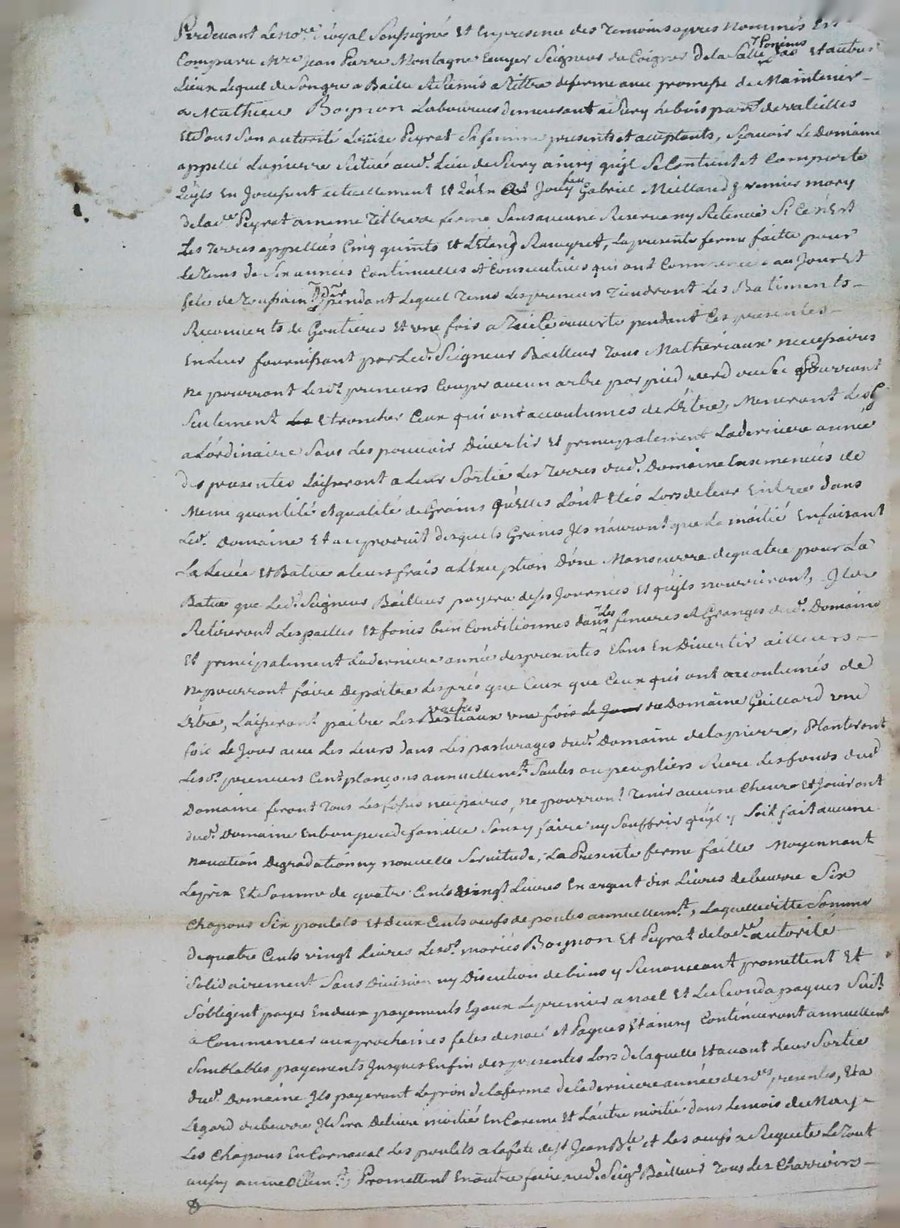 Perdevant Le nore Royal Soussigné Et En presence des Temoins apres Nommés Est
Comparu Mre Jean Pierre Montagne Ecuyer Seigneur de Poncins du Coignet de la Salle Et autres
Lieux Lequel de Son gre a Baille Remis a Titre de ferme avec promesse de Maintenir
a Mathieu Boynon Laboureur demeurant a Sury Le bois parr. de valeilles
Et Sous Son autorité Louise Peyrat Sa femme presents et acceptants, Sçavoir Le Domaine
appellé Lapierre Scitué aud. Lieu de Sury ainsy quil Se Contient et Comporte
quils En Jouissent actuellement Et qu'en a Jouy feu Gabriel Meilland premier mary
de lad. Peyrat a meme Tittre de ferme Sans aucune Reserve ny Retenue Si Ce n'est
Les Terres appellés Cinq quints Et L'Etang Rameyret, La presente ferme faitte pour
Le Tems de Six années Continuelles et Consecutives qui ont Commencé au Jour Et
fete de Toussaint dr pendant Lequel Tems Les preneurs Tiendront Les Batiments
Recouverts de Goutieres Et une fois a Taile ouverte pendant Les presentes
En Leur fournissant par Led. Seigneur Bailleur Tous Matheriaux necessaires
ne pourront Lesd. preneurs Couper aucun arbre par pied verd ou Sec Pourront
Seulement Etroncher Ceux qui ont accoutumés de L'Etre, Meneront Les
a L'ordinaire Sans Les pouvoir Divertir Et principalement La derniere année
des presentes Laisseront a Leur Sortie Les Terres dud. Domaine Ensemencés de
Meme quantité et qualité de Grains qu'elles L'ont Etés Lors de leur Entrée dans
Led. Domaine Et au produit desquels Grains Ils n'auront que La moitié En faisant
La Levée Et Batue a leurs frais a L'Exception D'une Manoeuvre de quatre pour La
Batue que Led. Seigneur Bailleur payera de Ses Journées Et quils nourriront, Ils
Retireront Les pailles Et foins bien Conditionnés dans Les feneres et Granges dud. Domaine
Et principalement La derniere année des presentes Sans En Divertir ailleurs
ne pourront faire Depaitre Les prés que Ceux que Ceux qui ont accoutumés de
L'Etre, Laisseront paitre Les Bestiaux vaches une fois Le Jour du Domaine Guillard une
fois Le Jour avec Les Leurs dans Les pasturages dud. Domaine de la pierre, Planteront
Lesd. preneurs Cent plançons annuellemt. Saules ou peupliers Riere Les fonds dud.
Domaine feront Tous Les fossés necessaires, ne pourront Tenir aucune Chevre Et Jouiront
dud. Domaine En bon pere de famille Sans y faire ny Souffrir quil y Soit fait aucune
novation Degradation ny nouvelle Servitude, La Presente ferme faitte Moyennant
Le prix Et Somme de quatre Cents vingt Livres En argent dix Livres de beurre Six
Chapons Six poulets Et deux Cents oeufs de poules annuellemt., Laquelle ditte Somme
De quatre Cents vingt Livres Lesd. mariés Boynon Et Peyrat de lad. autorité
Solidairement Sans Division ny Discution de biens y Renonceant promettent Et
S'obligent payer En deux payements Egaux Le premier a noel Et Le Second a paques Suivt.
a Commencer aux prochaines fetes de noel et Paques Et ainsy Continueront annuellemt
Semblables payements Jusques En fin des presentes Lors de laquelle Et avant Leur Sortie
dud. Domaine Ils payeront Le prix de la ferme de la derniere année desd. presentes, Et a
L'egard du beurre Il Sera Delivré moitié En Careme Et L'autre moitié dans Le mois de May
Les Chapons En Carnaval Les poulets a la fete de St Jean Bte et Les oeufs a Requete Le Tout
aussy annuellemt., Promettent En outre faire aud. Seigr. Bailleur Tous Les Charrois